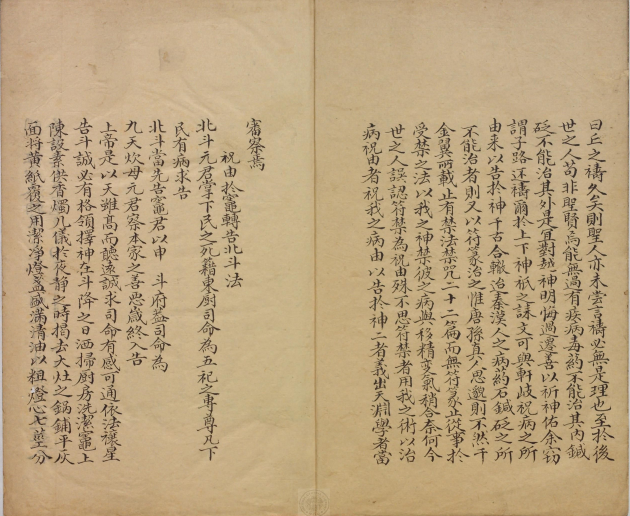 曰丘之禱久矣則聖人亦未嘗言禱必無是理也至於後
世之人苟非聖賢烏能無過有疾病毒藥不能治其内鍼
砭不能治其外是宜對越神明悔過遷善以祈神佑余竊
謂子路還禱爾於上下神祇之誄文可與軒岐祝病之所
由来以告於神千古合轍治秦漢人之病藥石鍼砭之所
不能治者則又以符篆治之惟唐孫真人思邈則不然千
金翼所載止有禁法禁咒二十二篇而無符篆止從事於
受禁之法以我之神禁彼之病與移精變氣稍合奈何今
世之人誤認符禁為祝由殊不思符禁者用我之術以治
病祝由者祝我之病由以告於神二者義出天淵學者當
審察焉
祝由於竈轉告北斗法
北斗元君掌下民之死籍東厨司命為五祀之專尊凡下
民有病求告
北斗當先告竈君以申 斗府葢司命為
九天坎母元君察本家之善惡歲終入告
上帝是以天雖髙而聽逺誠求司命有感可通依法禳星
告斗誠必有格領擇神在斗降之日洒掃厨房洗潔竈上
陳設素供香燭几儀於夜静之時揭去大灶之鍋鋪平灰
面將黄紙覆之用潔净燈盞盛滿清油以粗燈心七莖分